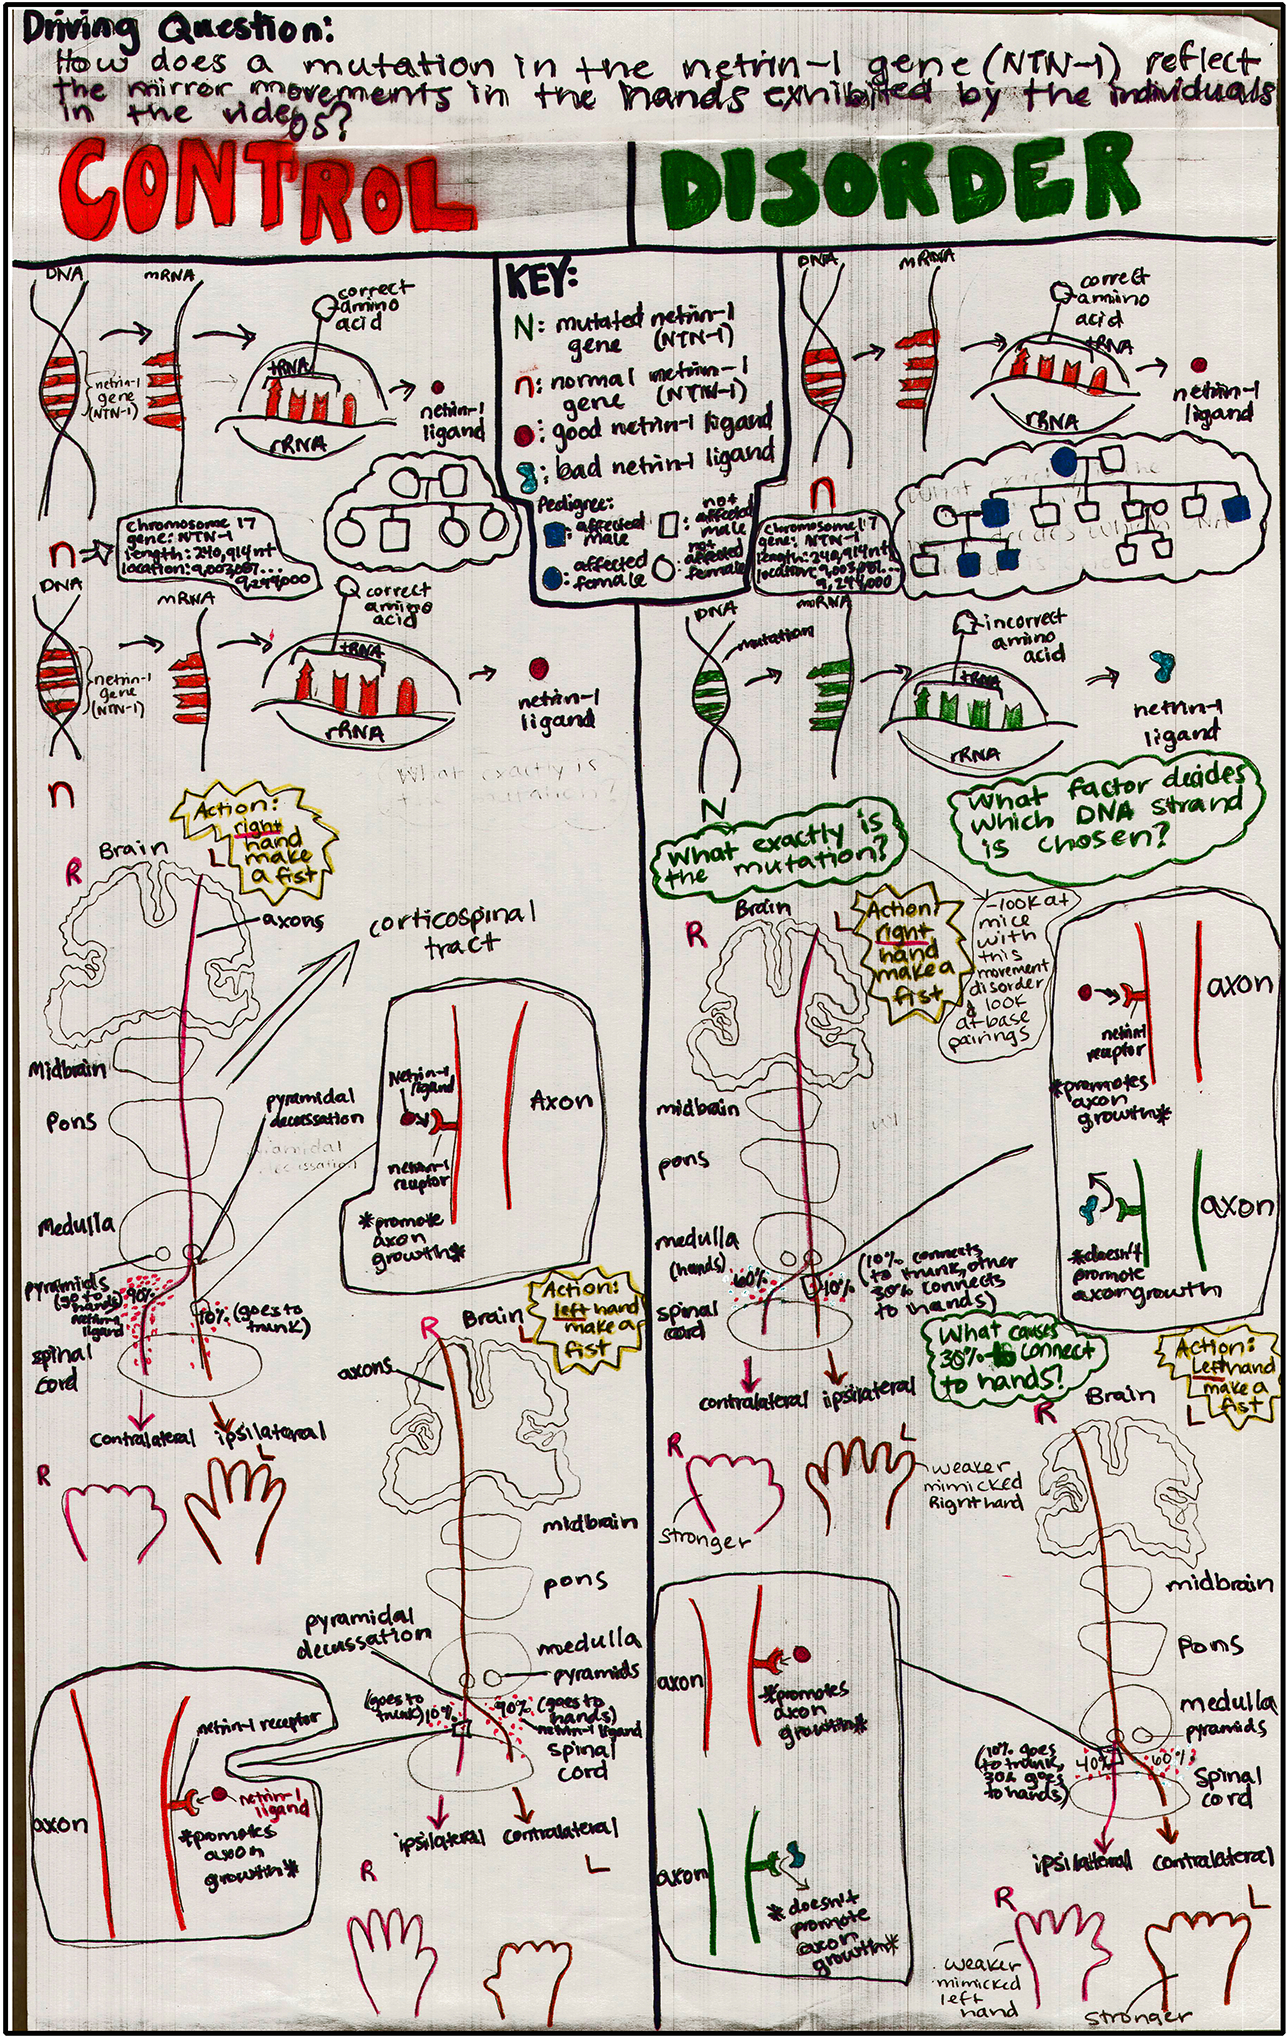 Driving Question:
How does a mutation in the netrin-1 gene (NTN-1) reflect
the mirror movements in the hands exhibited by the individuals
in the videos?
CONTROL
DISORDER
DNA
mRNA
correct
amino
acid
tRNA
rRNA
netrin-1
gene
(NTN-1)
netrin-1
ligand
n
chromosome 17
gene: NTN-1
length: 240,914nt
location: 9,003,087...
9,244,000
DNA
mRNA
correct
amino
acid
tRNA
rRNA
netrin-1
gene
(NTN-1)
netrin-1
ligand
n
What exactly is
the mutation?
KEY:
N: mutated netrin-1
gene (NTN-1)
n: normal netrin-1
gene (NTN-1)
: good netrin-1 ligand
: bad netrin-1 ligand
Pedigree:
: affected
male
: not
affected
male
: affected
female
: not
affected
female
DNA
mRNA
correct
amino
acid
tRNA
rRNA
netrin-1
ligand
n
chromosome 17
gene: NTN-1
length: 240,914nt
location: 9,003,087...
9,244,000
DNA
mutation
mRNA
incorrect
amino
acid
tRNA
rRNA
netrin-1
ligand
N
What exactly is
the mutation?
What factor decides
which DNA strand
is chosen?
-look at
mice
with
this
movement
disorder
& look
at base
pairings
Action:
right
hand
make
a fist
R
Brain
L
axons
corticospinal
tract
Midbrain
Pons
pyramidal
decussation
pyramidal
decussation
Medulla
pyramids
(go to
hands)
90%
netrin-1
ligand
10% (goes to
trunk)
spinal
cord
contralateral
ipsilateral
R
L
Netrin-1
ligand
Axon
netrin-1
receptor
*promote
axon
growth*
Action:
left hand
make a
fist
R
Brain
L
axons
midbrain
pons
pyramidal
decussation
medulla
pyramids
(goes to
trunk) 10%
90% (goes to
hands)
netrin-1 ligand
spinal
cord
ipsilateral
contralateral
R
L
netrin-1 receptor
netrin-1
ligand
axon
*promotes
axon
growth*
Action:
right
hand
make a
fist
R
Brain
L
midbrain
pons
medulla
(hands)
60%
40%
(10% connects
to trunk, other
30% connects
to hands)
spinal
cord
What causes
30% to connect
to hands?
contralateral
ipsilateral
R
L
stronger
weaker
mimicked
Right hand
axon
netrin-1
receptor
*promotes
axon
growth*
axon
*doesn't
promote
axon growth
Action:
Left hand
make a
fist
R
Brain
L
midbrain
Pons
medulla
pyramids
(10% goes
to trunk,
30% goes
to hands)
40%
60%
spinal
cord
ipsilateral
contralateral
R
L
weaker
mimicked
left
hand
stronger
axon
*promotes
axon
growth*
axon
*doesn't
promote
axon
growth*